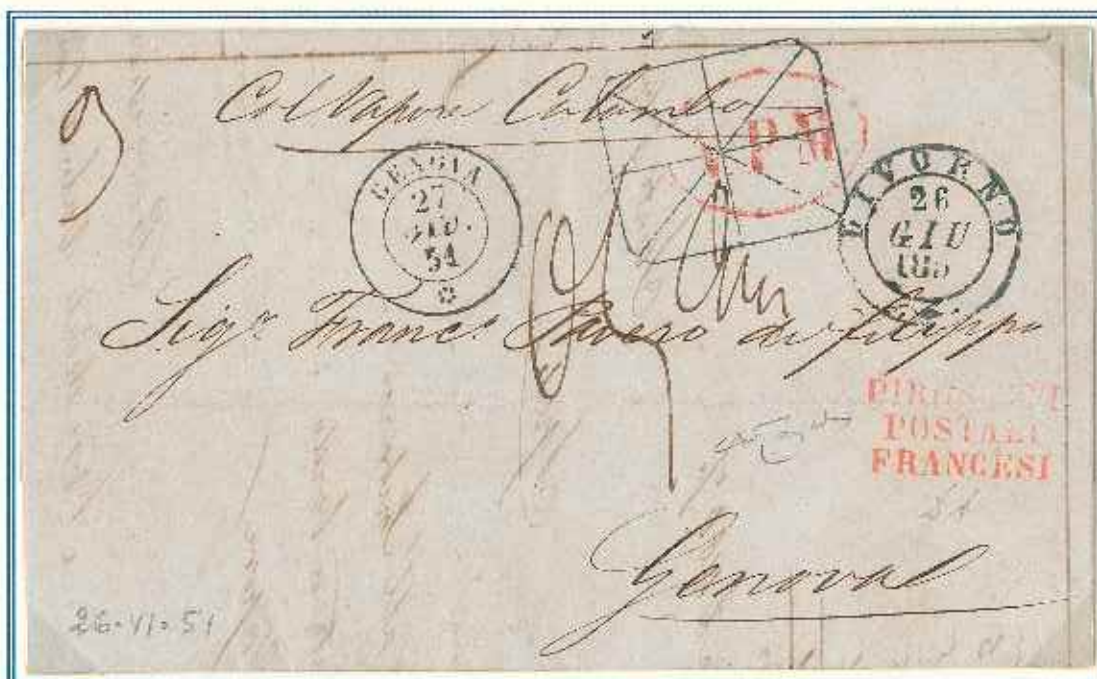 Col Vapore Colombo
GENOVA
27
GIU.
51
8
PM
LIVORNO
26
GIU
185
Sigr Franc
di Filippo
POSTALI
FRANCESI
Genova
26.VI.51